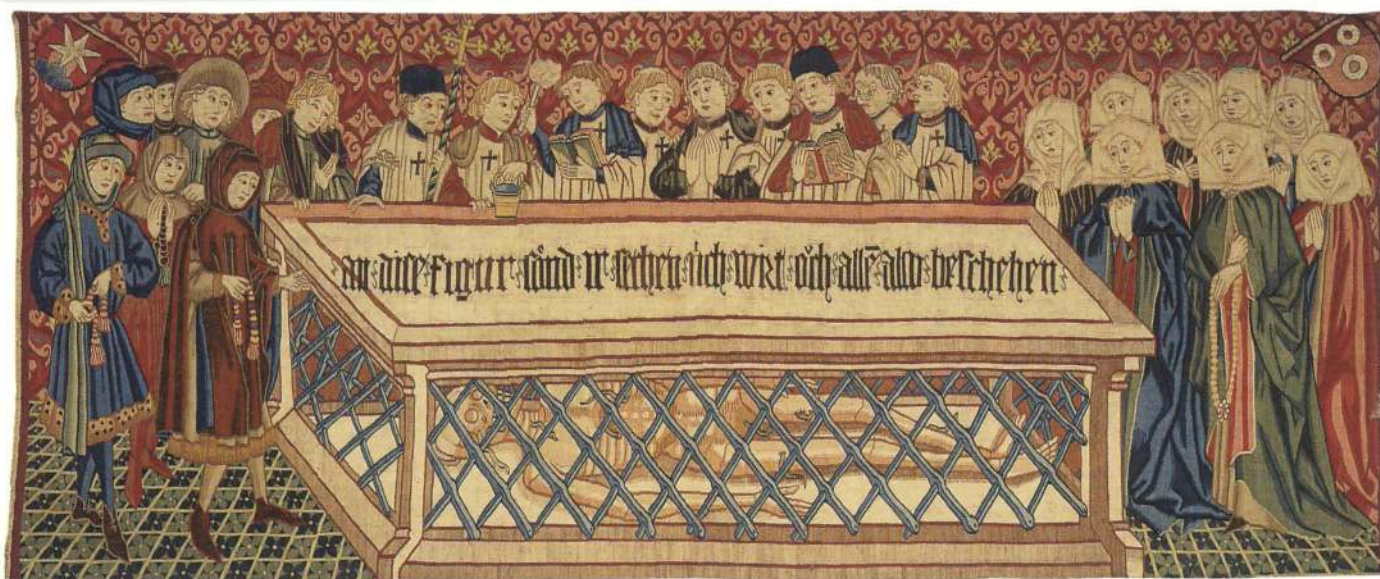 an · dise · figur · sönd · ir · sechen · üch · wirt · öch · alle · also · beschehen ·